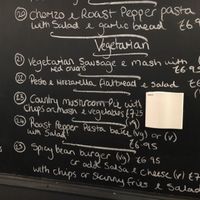 20 Chorizo & Roast Pepper pasta
with Salad & garlic bread
Vegetarian
21 Vegetarian Sausage & mash with
red onion
£6.9
22 Pesto & Mozzarella flatbread & Salad £6
23 Country mushroom Pie with
chips or mash & vegetables £7.25
24 Roast Pepper Pasta bake (vg) or (v)
with Salad £6.95
25 Spicy bean burger (vg) £6.95
or add Salsa & cheese (v) £7
with chips or skinny fries & Salad